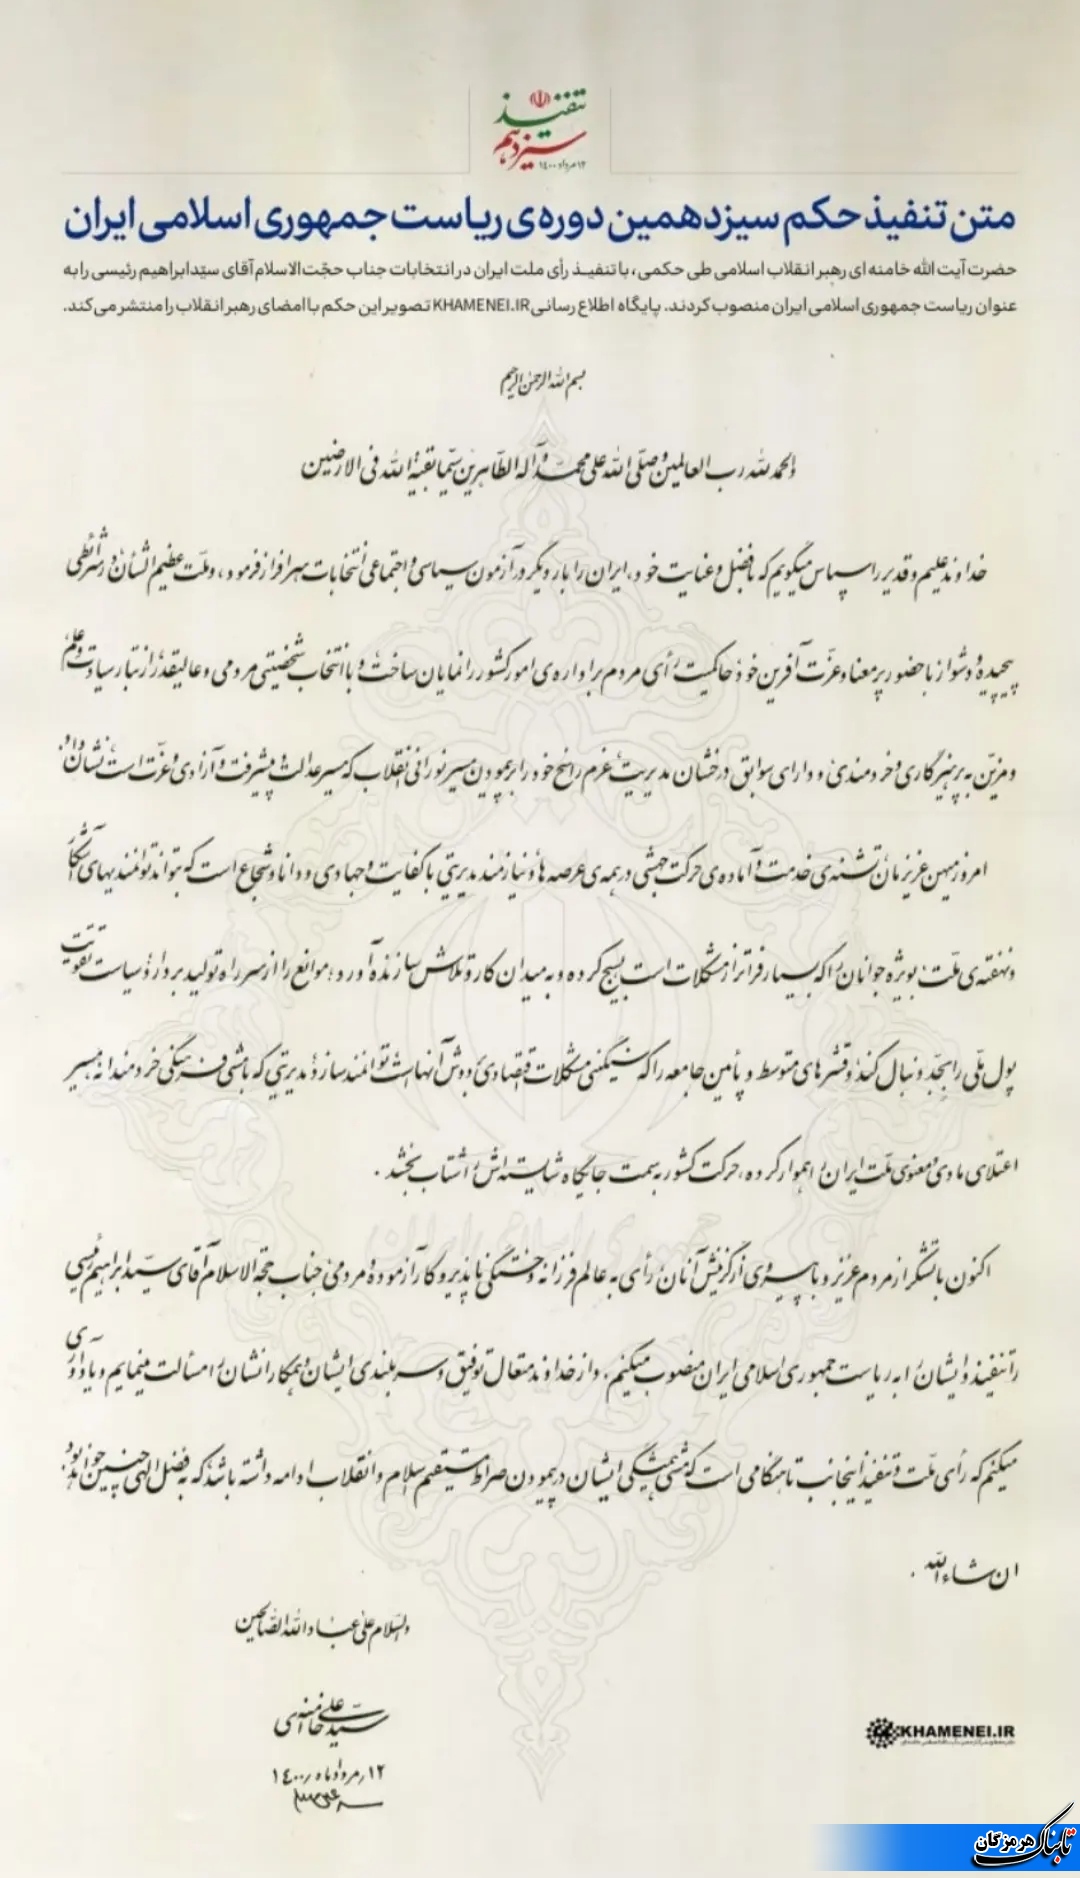 تنفیذ
سیزدهم
۱۲ مرداد ۱۴۰۰
متن تنفیذ حکم سیزدهمین دوره‌ی ریاست جمهوری اسلامی ایران
حضرت آیت الله خامنه ای رهبر انقلاب اسلامی طی حکمی، با تنفیذ رأی ملت ایران در انتخابات جناب حجّت الاسلام آقای سیّد ابراهیم رئیسی را به
عنوان ریاست جمهوری اسلامی ایران منصوب کردند. پایگاه اطلاع رسانی KHAMENEI.IR تصویر این حکم با امضای رهبر انقلاب را منتشر می‌کند.
بسم الله الرحمن الرحیم
والحمد لله رب العالمین وصلّی الله علی محمّد وآله الطّاهرین سیّما بقیة الله فی الارضین
خداوند علیم و قدیر را سپاس میگویم که با فضل و عنایت خود، ایران را بار دیگر در آزمون سیاسی و اجتماعی انتخابات سرافراز فرمود، و ملّت عظیم الشأن در شرائطی
پیچیده و دشوار با حضور پرمعنا و عزّت آفرین خود حاکمیت رأی مردم بر اداره‌ی امور کشور را نمایان ساخت و با انتخاب شخصیّتی مردمی و عالیقدر از تبار سیادت و علم
و مزیّن به پرهیزگاری و خردمندی و دارای سوابق درخشان مدیریت، عزم راسخ خود را بر پیمودن مسیر نورانی انقلاب که مسیر عدالت و پیشرفت و آزادی و عزّت است نشان داد.
امروز میهن عزیزمان تشنه‌ی خدمت و آماده‌ی حرکت جهشی در همه‌ی عرصه ها و نیازمند مدیریتی با کفایت و جهادی و دانا و شجاع است که بتواند توانمندیهای آشکار
و نهفته‌ی ملّت بویژه جوانان را که بسیار فراتر از مشکلات است بسیج کرده و به میدان کار و تلاش سازنده آورد؛ موانع را از سر راه تولید بردارد و سیاست تقویت
پول ملّی را بجّد دنبال کند و قشرهای متوسط و پائین جامعه را که سنگینی مشکلات اقتصادی بر دوش آنهاست توانمند سازد؛ مدیریتی که با مشی فرهنگی خردمندانه، مسیر
اعتلای مادی و معنوی ملّت ایران را هموار کرده، حرکت کشور به سمت جایگاه شایسته‌اش را شتاب بخشد.
اکنون با تشکر از مردم عزیز و با پیروی از گزینش آنان، رأی به عالم فرزانه و خستگی ناپذیر و کارآزموده و مردمی جناب حجة الاسلام آقای سیّد ابراهیم رئیسی
را تنفیذ و ایشان را به ریاست جمهوری اسلامی ایران منصوب میکنم. و از خداوند متعال توفیق و سربلندی ایشان و همکارانشان را مسألت مینمایم و یادآوری
میکنم که رأی ملّت و تنفیذ اینجانب تا هنگامی است که مشی همیشگی ایشان در پیمودن صراط مستقیم اسلام و انقلاب ادامه داشته باشد که به فضل الهی چنین خواهد بود
ان شاءالله.
والسّلام علی عباد الله الصّالحین
سیّد علی خامنه‌ای
۱۲ مرداد ماه ۱۴۰۰
KHAMENEI.IR
تابناک هرمزگان